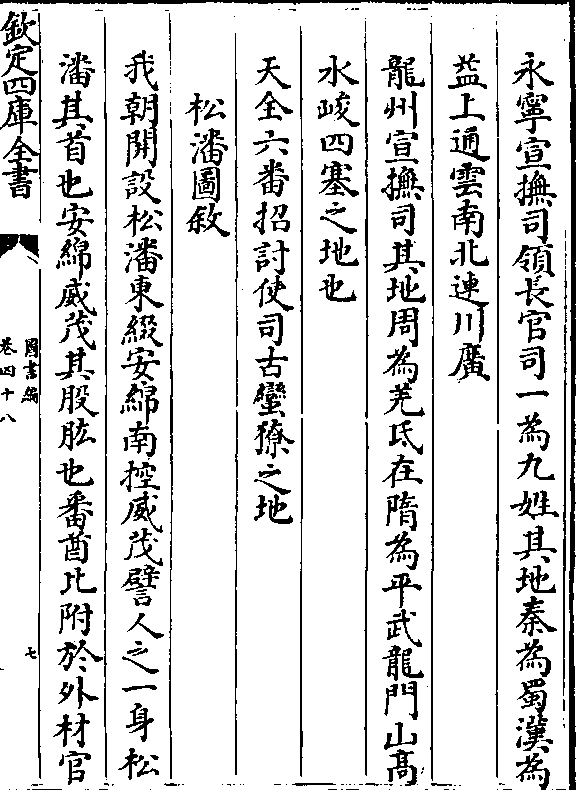 永寧宣撫司領長官司一為九姓其地秦為蜀漢為
益上通雲南北連川廣
龍州宣撫司其地周為羌氐在隋為平武龍門山髙
水峻四塞之地也
天全六番招討使司古蠻獠之地
松潘圖敘
我朝開設松潘東綴安綿南控威茂譬人之一身松
潘其首也安綿威茂其股肱也番酋比附於外材官
欽定四庫全書
圖書編
卷四十八
七